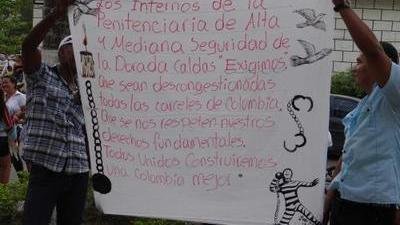 Los Internos de la
Penitenciaria de Alta
y Mediana Seguridad de
la Dorada Caldas "Exigimos"
Que sean descongestionadas
todas las carceles de Colombia,
Que se nos respeten nuestros
derechos fundamentales.
Todos Unidos Construiremos
una Colombia mejor"